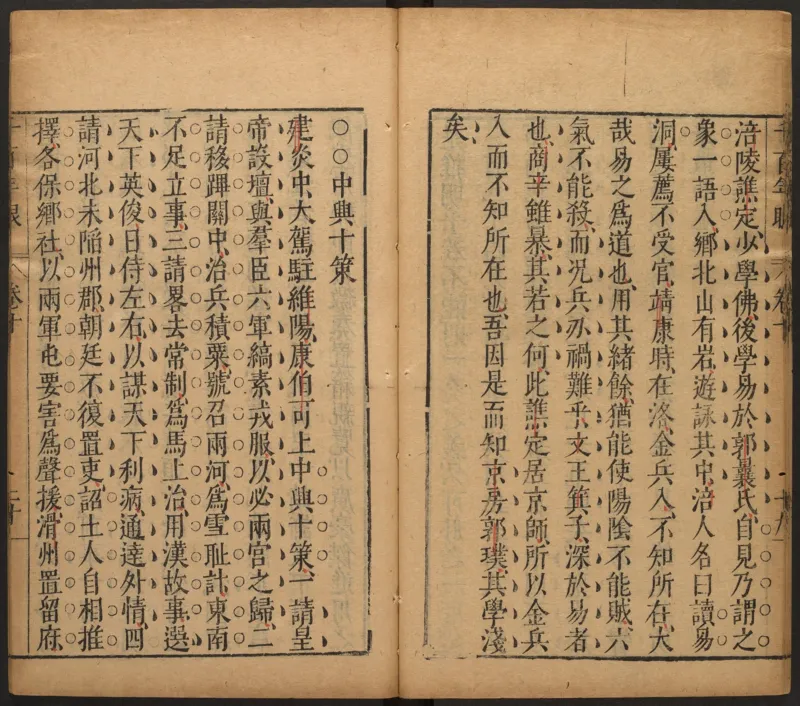 千百年眼 卷十 十九
涪陵譙定少學佛後學易於郭曩氏自見乃謂之
象一語入鄉北山有岩遊詠其中涪人名曰讀易
洞屢薦不受官靖康時在洛金兵入不知所在大
哉易之爲道也用其緒餘猶能使陽陰不能賊六
氣不能殺而况兵刃禍難乎文王箕子深於易者
也商辛雖暴其若之何此譙定居京師所以金兵
入而不知所在也吾因是而知京房郭璞其學淺
矣
○○中興十策
建炎中大駕駐維陽康伯可上中興十策一請皇
帝設壇與羣臣六軍縞素戎服以必兩宮之歸二
請移蹕關中治兵積粟號召兩河爲雪耻計東南
不足立事三請畧去常制爲馬上治用漢故事選
天下英俊日侍左右以謀天下利病通達外情四
請河北未陷州郡朝廷不復置吏詔土人自相推
擇各保鄉社以兩軍屯要害爲聲援滑州置留府
千百年眼 卷十 二十